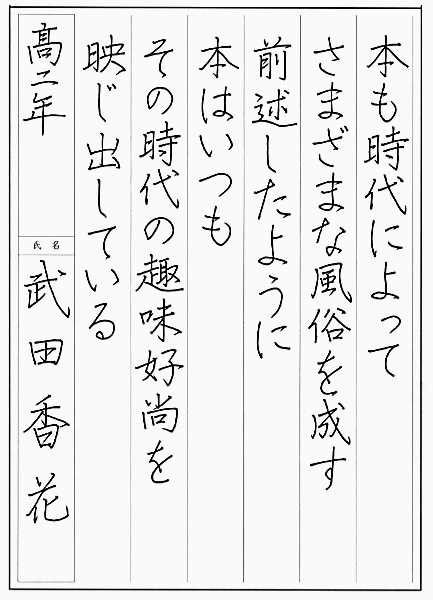 本も時代によって
さまざまな風俗を成す
前述したように
本はいつも
その時代の趣味好尚を
映じ出している
高二年
氏名
武田香花